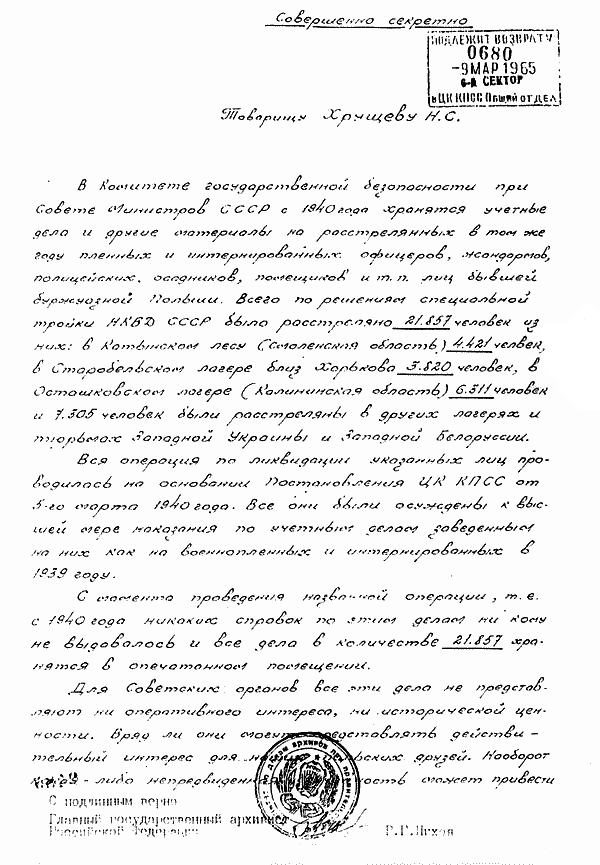 Совершенно секретно
ПОДЛЕЖИТ ВОЗВРАТУ
0680
-9 МАР 1965
6-й СЕКТОР
в ЦК КПСС Общий отдел
Товарищу Хрущеву Н.С.
В Комитете государственной безопасности при
Совете Министров СССР с 1940 года хранятся учетные
дела и другие материалы на расстрелянных в том же
году пленных и интернированных офицеров, жандармов,
полицейских, осадников, помещиков и т.п. лиц бывшей
буржуазной Польши. Всего по решениям специальной
тройки НКВД СССР было расстреляно 21.857 человек из
них: в Катынском лесу (Смоленская область) 4.421 человек,
в Старобельском лагере близ Харькова 3.820 человек, в
Осташковском лагере (Калининская область) 6.311 человек
и 7.305 человек были расстреляны в других лагерях и
тюрьмах Западной Украины и Западной Белоруссии.
Вся операция по ликвидации указанных лиц про-
водилась на основании Постановления ЦК КПСС от
5-го марта 1940 года. Все они были осуждены к выс-
шей мере наказания по учетным делам заведенным
на них как на военнопленных и интернированных в
1939 году.
С момента проведения названной операции, т.е.
с 1940 года никаких справок по этим делам ни кому
не выдавалось и все дела в количестве 21.857 хра-
нятся в опечатанном помещении.
Для Советских органов все эти дела не представ-
ляют ни оперативного интереса, ни исторической цен-
ности. Вряд ли они могут представлять действи-
тельный интерес для друзей. Наоборот
какая-либо может привести
С подлинным верно
Главный государственный архивист
Российской Федерации Р.Г.Пихоя